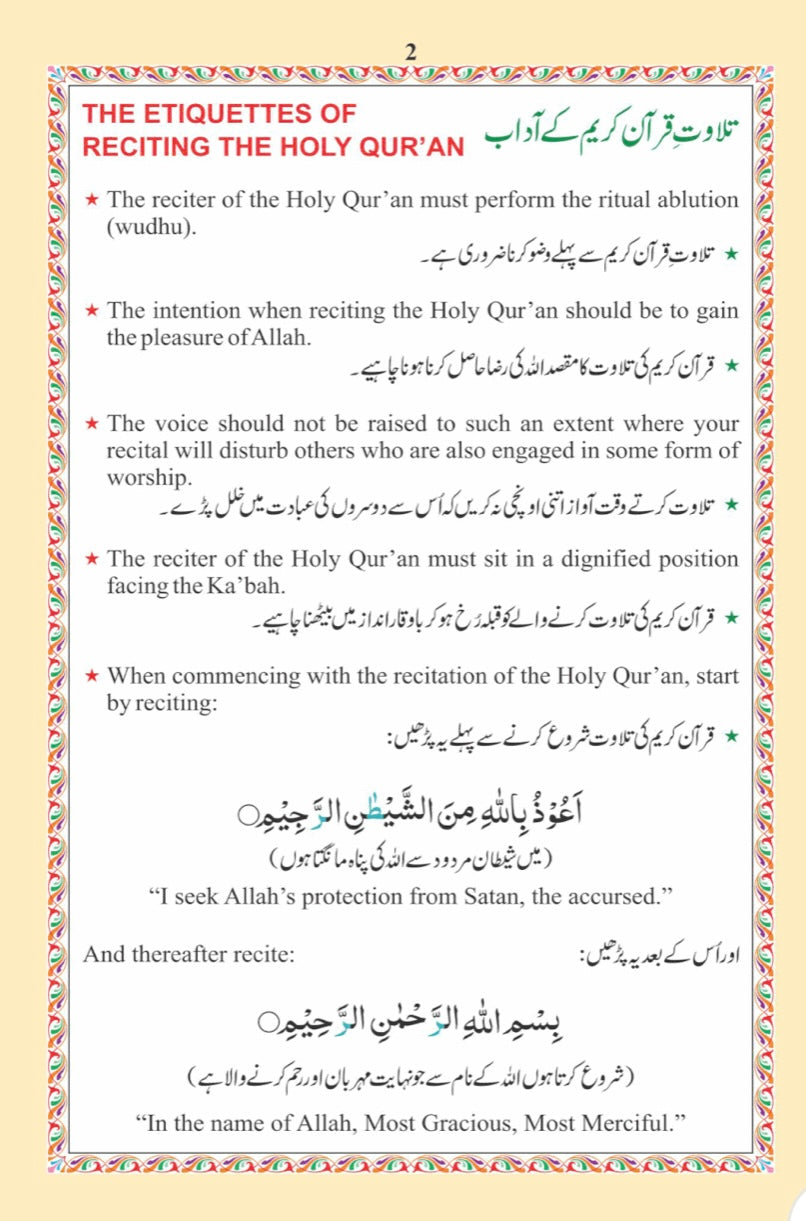 2
THE ETIQUETTES OF
RECITING THE HOLY QUR’AN
تلاوتِ قرآن کریم کے آداب
★ The reciter of the Holy Qur’an must perform the ritual ablution
(wudhu).
★ تلاوتِ قرآن کریم سے پہلے وضو کرنا ضروری ہے۔
★ The intention when reciting the Holy Qur’an should be to gain
the pleasure of Allah.
★ قرآن کریم کی تلاوت کا مقصد اللہ کی رضا حاصل کرنا ہونا چاہیے۔
★ The voice should not be raised to such an extent where your
recital will disturb others who are also engaged in some form of
worship.
★ تلاوت کرتے وقت آواز اتنی اونچی نہ کریں کہ اُس سے دوسروں کی عبادت میں خلل پڑے۔
★ The reciter of the Holy Qur’an must sit in a dignified position
facing the Ka’bah.
★ قرآن کریم کی تلاوت کرنے والے کو قبلہ رُخ ہو کر باوقار انداز میں بیٹھنا چاہیے۔
★ When commencing with the recitation of the Holy Qur’an, start
by reciting:
★ قرآن کریم کی تلاوت شروع کرنے سے پہلے یہ پڑھیں:
اَعُوْذُ بِاللّٰهِ مِنَ الشَّيْطٰنِ الرَّجِيْمِ○
(میں شیطان مردود سے اللہ کی پناہ مانگتا ہوں)
“I seek Allah’s protection from Satan, the accursed.”
And thereafter recite:
اور اُس کے بعد یہ پڑھیں:
بِسْمِ اللّٰهِ الرَّحْمٰنِ الرَّحِيْمِ○
(شروع کرتا ہوں اللہ کے نام سے جو نہایت مہربان اور رحم کرنے والا ہے)
“In the name of Allah, Most Gracious, Most Merciful.”